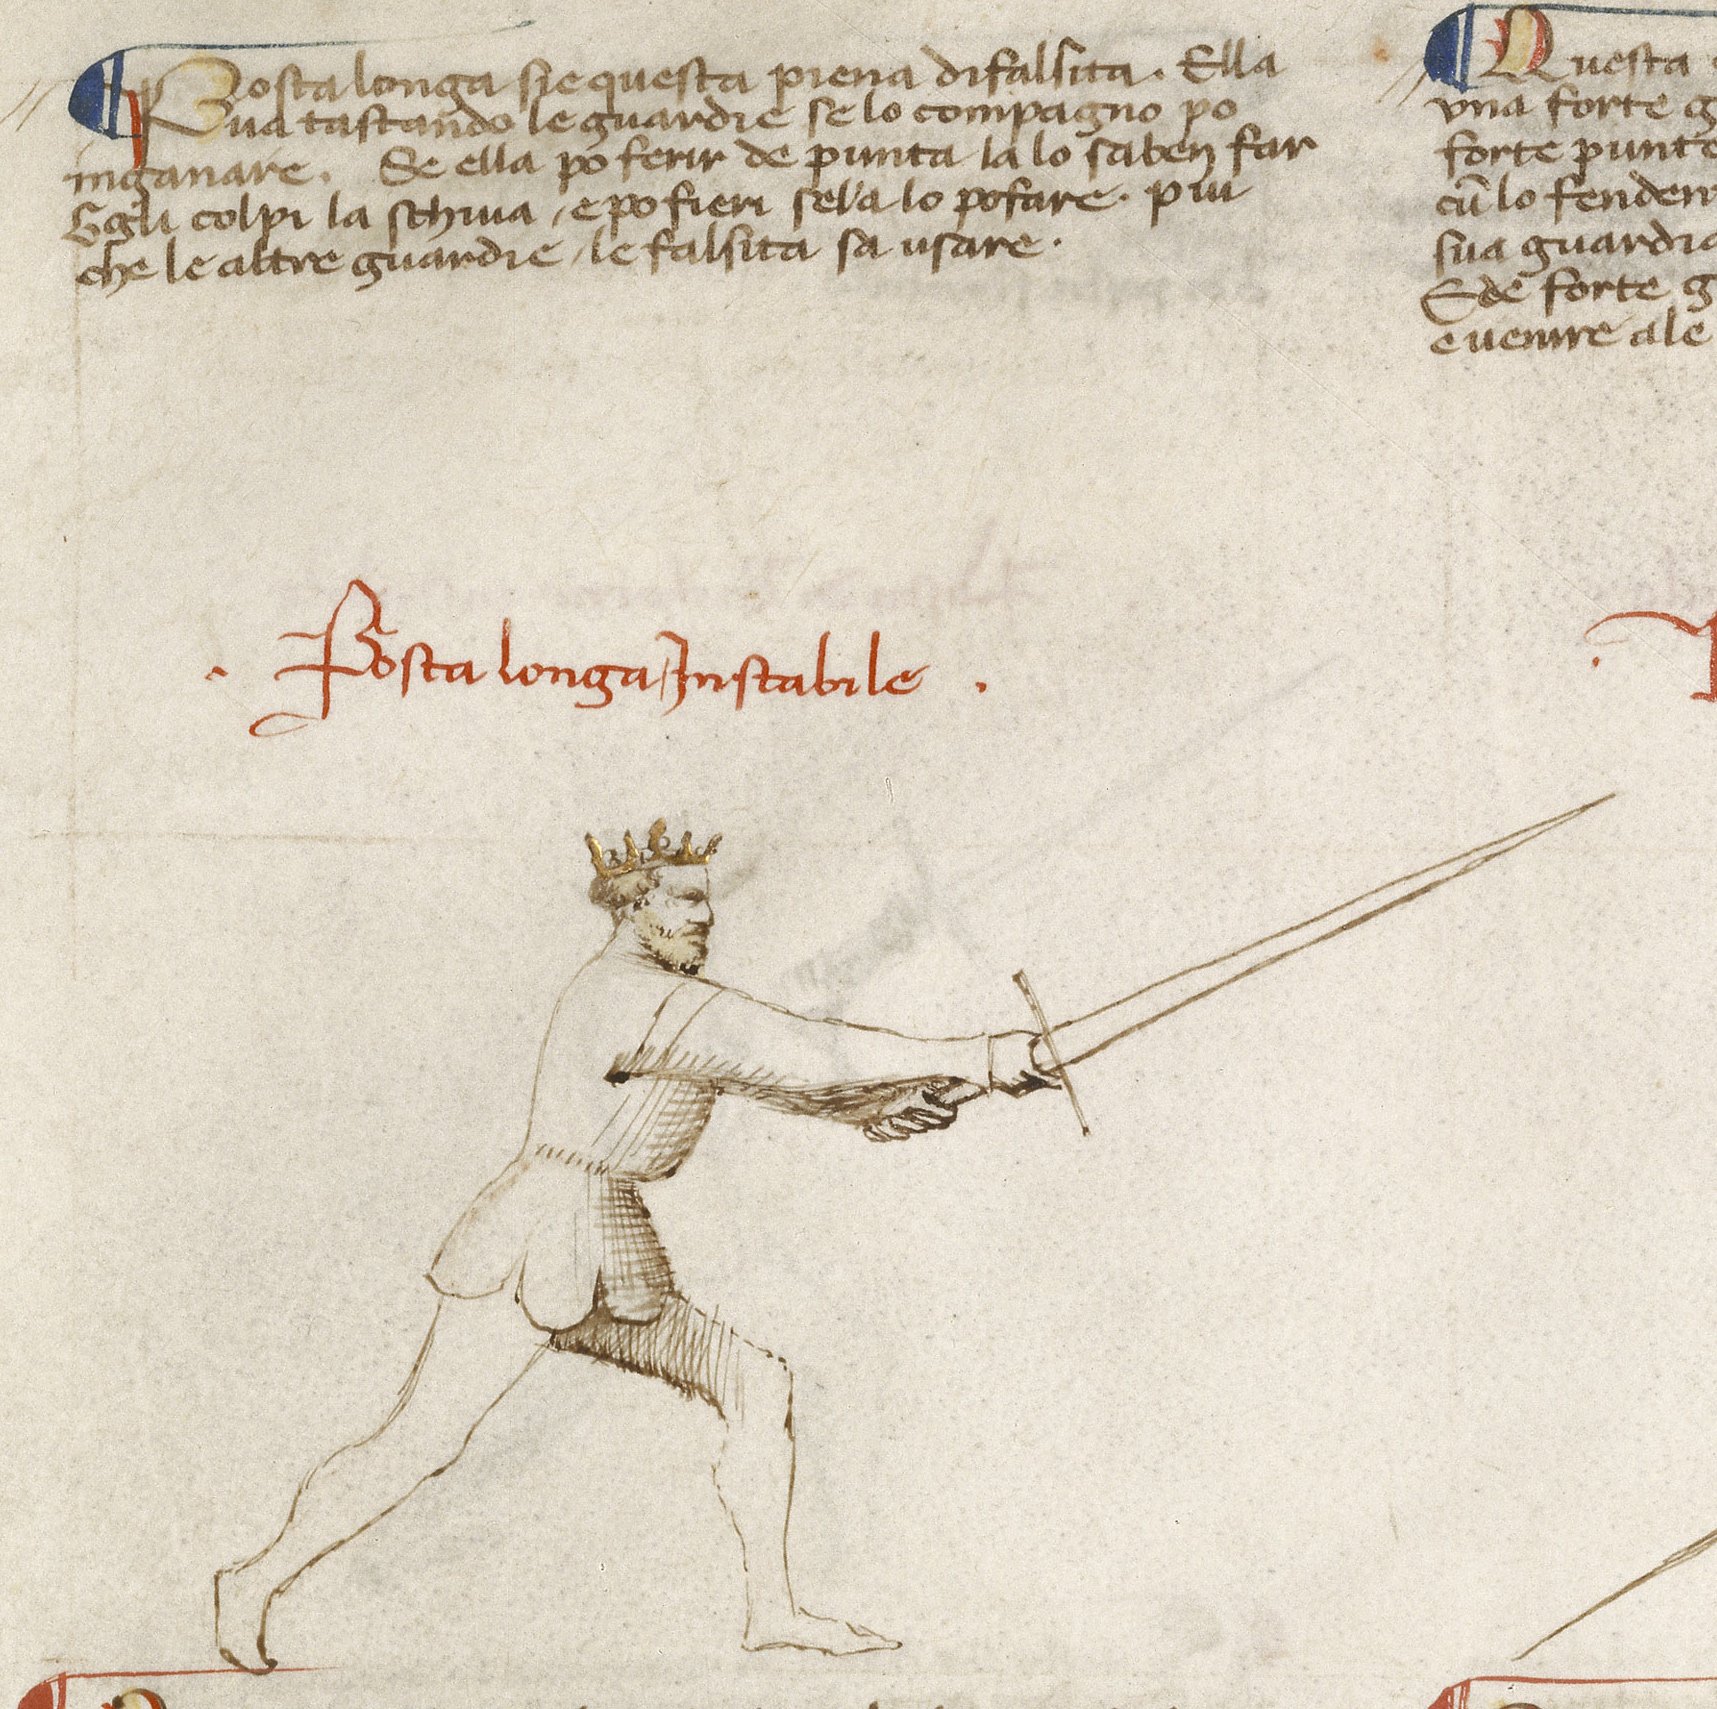 Posta longa sie questa piena di falsita. Ella
va tastando le guardie se lo compagno po
inganare. Se ella po ferir de punta la lo sa ben far
E gli colpi la schiva, e po fieri sela lo po fare. piu
che le altre guardie, le falsita sa usare.
. Posta longa, Instabile .
Questa
una forte g
forte punt
cu lo fenden
sua guardi
E de forte g
e venire a le